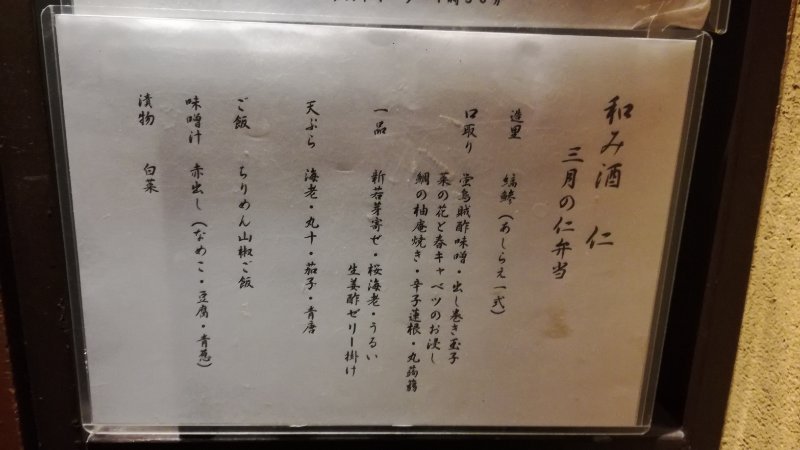 和み酒 仁
三月の仁弁当
造里 縞鯵(あしらえ一式)
口取り 蛍烏賊酢味噌・出し巻き玉子
菜の花と春キャベツのお浸し
鯛の柚庵焼き・辛子蓮根・丸蒟蒻
一品 新若芽寄せ・桜海老・うるい
生姜酢ゼリー掛け
天ぷら 海老・丸十・茄子・青唐
ご飯 ちりめん山椒ご飯
味噌汁 赤出し(なめこ・豆腐・青葱)
漬物 白菜